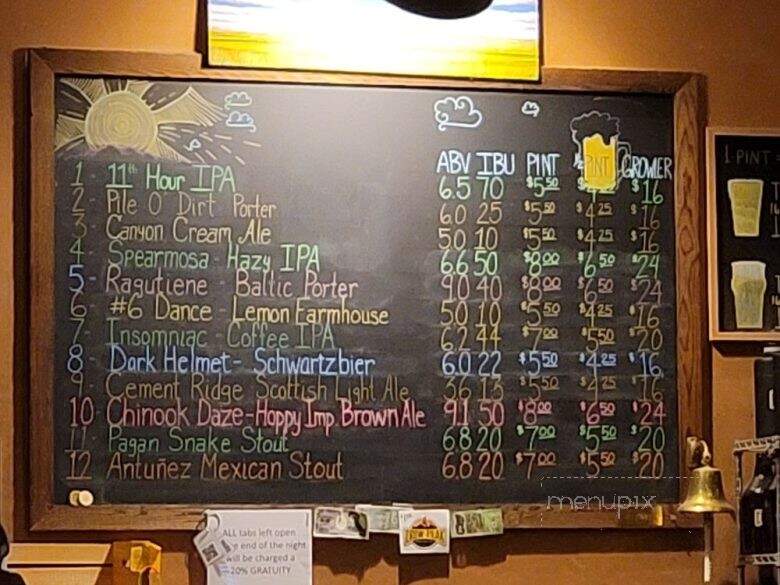 ABV IBU PINT ½ PINT GROWLER
1 - 11th Hour IPA 6.5 70 $5.50 $4.25 $16
2 - Pile O' Dirt Porter 6.0 25 $5.50 $4.25 $16
3 - Canyon Cream Ale 5.0 10 $5.50 $4.25 $16
4 - Spearmosa - Hazy IPA 6.6 50 $8.00 $6.50 $24
5 - Ragutiene - Baltic Porter 9.0 40 $8.00 $6.50 $24
6 - #6 Dance - Lemon Farmhouse 5.0 10 $5.50 $4.25 $16
7 - Insomniac Coffee IPA 6.2 44 $7.00 $5.50 $20
8 - Dark Helmet - Schwartzbier 6.0 22 $5.50 $4.25 $16
9 - Cement Ridge Scottish Light Ale 3.6 13 $5.50 $4.25 $16
10 - Chinook Daze - Hoppy Imp. Brown Ale 9.1 50 $8.00 $6.50 $24
11 - Pagan Snake Stout 6.8 20 $7.00 $5.50 $20
12 - Antuñez Mexican Stout 6.8 20 $7.00 $5.50 $20
1 PINT
menupix
ALL tabs left open
end of the night
will be charged a
20% GRATUITY
CROW PEAK